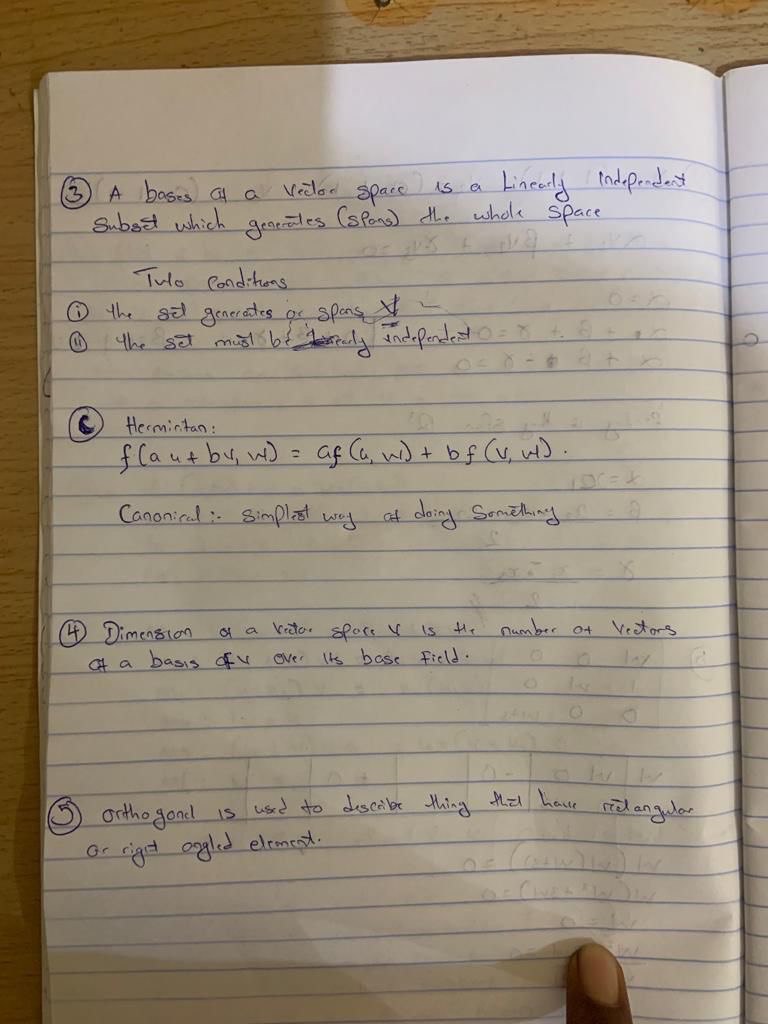 ③ A bases of a vector space is a Linearly Independent
Subset which generates (spans) the whole space
Two Conditions
(i) the set generates or spans V
(ii) the set must be linearly independent
(C) Hermiritan:
f(au + bv, w) = af(u, w) + bf(v, w).
Canonical:- Simplest way of doing Something
④ Dimension of a vector space V is the number of Vectors
of a basis of V over its base Field.
⑤ Orthogonal is used to describe thing that have rectangular
or right angled element.